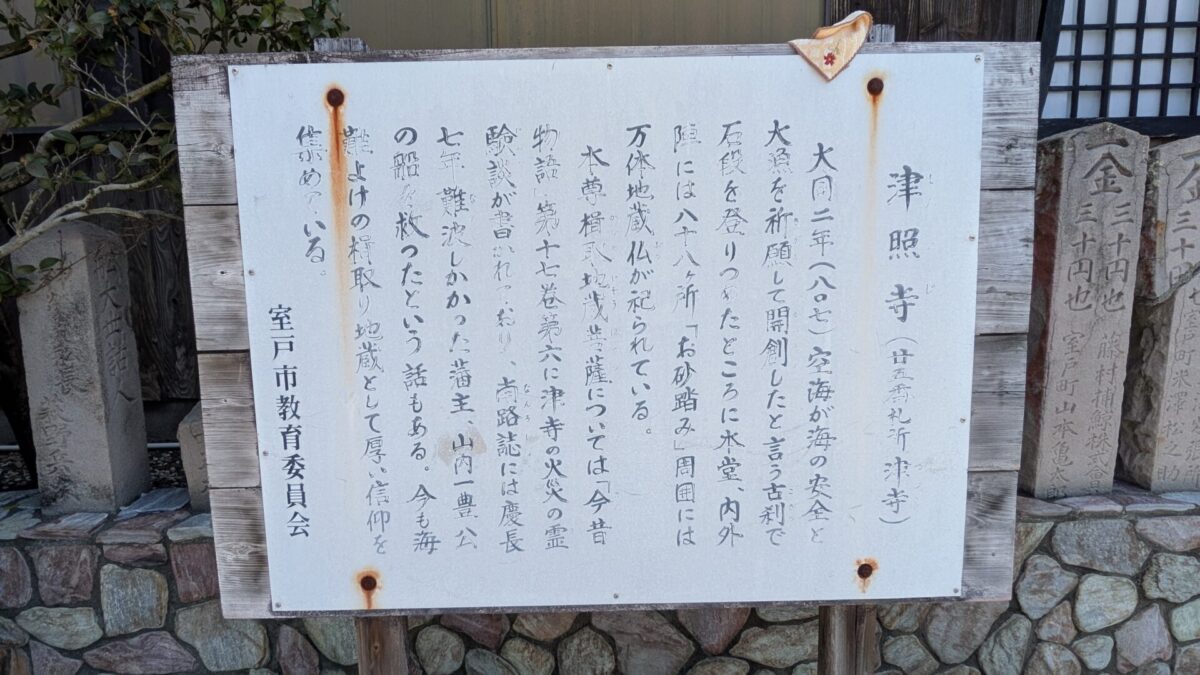 津照寺（廿五番札所津寺）
大同二年（八〇七）空海が海の安全と
大魚を祈願して開創したと言う古刹で
石段を登りつめたところに本堂、内外
陣には八十八ヶ所「お砂踏み」周囲には
万体地蔵仏が祀られている。
本尊楫取地蔵菩薩については「今昔
物語」第十七巻第六に津寺の火災の霊
験談が書かれており、南路誌には慶長
七年難波しかかった藩主、山内一豊公
の船を救ったという話もある。今も海
難よけの楫取り地蔵として厚い信仰を
集めている。
室戸市教育委員会
一金三十円也 藤村捕鯨株式会
三十円也 室戸町山本亀太
室戸町米澤松之助